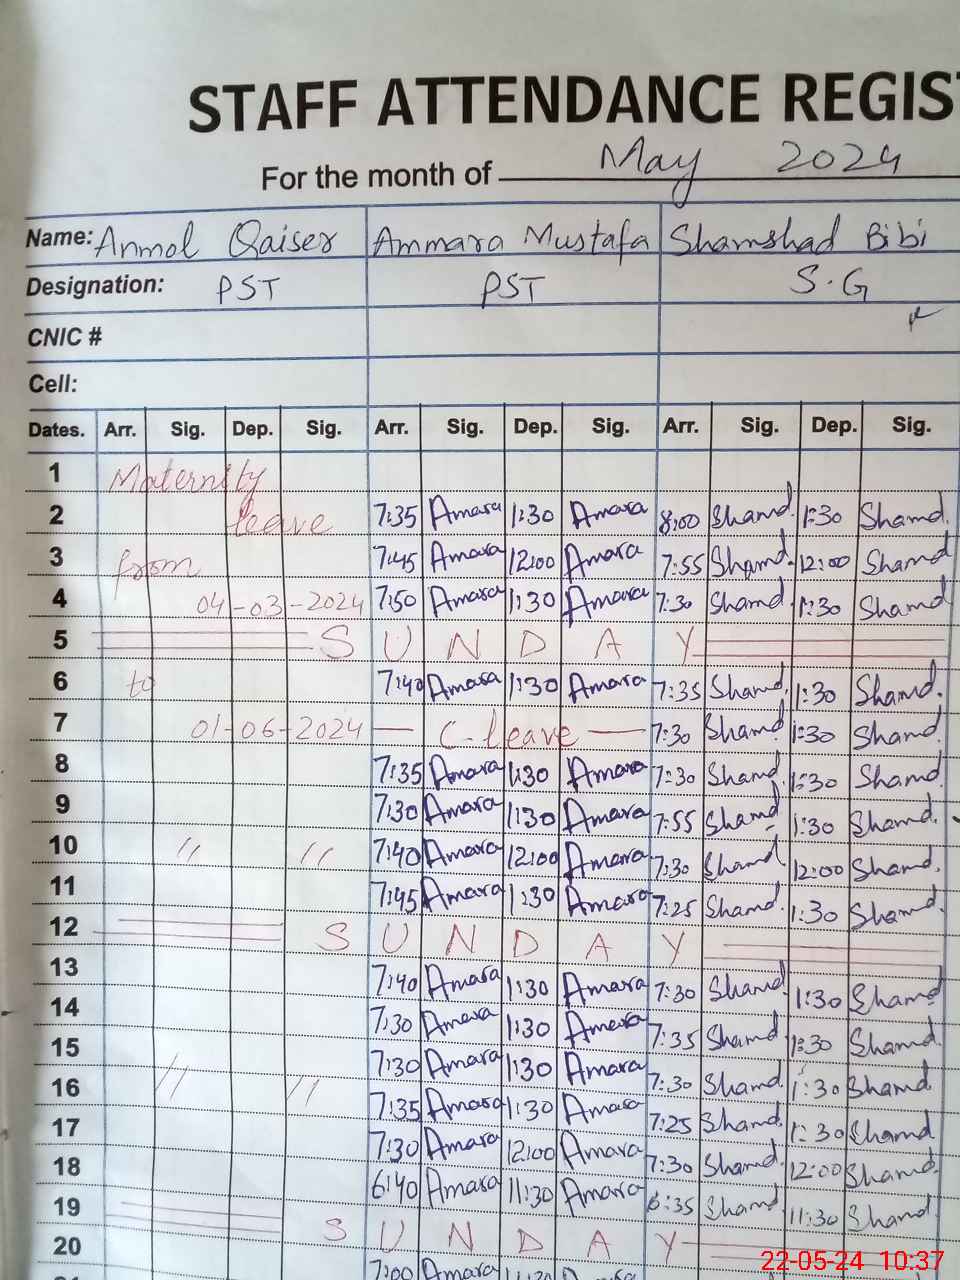 STAFF ATTENDANCE REGIS
For the month of May 2024
Name: Anmol Qaiser Ammara Mustafa Shamshad Bibi
Designation: PST PST S.G
CNIC #
Cell:
Dates. Arr. Sig. Dep. Sig. Arr. Sig. Dep. Sig. Arr. Sig. Dep. Sig.
1 Maternity
2 leave 7:35 Amara 1:30 Amara 8:00 Shamd. 1:30 Shamd.
3 from 7:45 Amara 12:00 Amara 7:55 Shamd. 12:00 Shamd
4 04-03-2024 7:50 Amara 1:30 Amara 7:30 Shamd 1:30 Shamd
5 SUNDAY
6 to 7:40 Amara 1:30 Amara 7:35 Shamd. 1:30 Shamd.
7 01-06-2024 — C-leave — 7:30 Shamd 1:30 Shamd
8 7:35 Amara 1:30 Amara 7:30 Shamd 1:30 Shamd
9 7:30 Amara 1:30 Amara 7:55 Shamd 1:30 Shamd.
10 " " 7:40 Amara 12:00 Amara 7:30 Shamd. 12:00 Shamd.
11 7:45 Amara 1:30 Amara 7:25 Shamd. 1:30 Shamd.
12 SUNDAY
13 7:40 Amara 1:30 Amara 7:30 Shamd 1:30 Shamd
14 7:30 Amara 1:30 Amara 7:35 Shamd 1:30 Shamd
15 7:30 Amara 1:30 Amara 7:30 Shamd 1:30 Shamd
16 " " 7:35 Amara 1:30 Amara 7:25 Shamd. 1:30 Shamd
17 7:30 Amara 12:00 Amara 7:30 Shamd. 12:00 Shamd.
18 6:40 Amara 11:30 Amara 6:35 Shamd. 11:30 Shamd.
19 SUNDAY
20 7:00 Amara
22-05-24 10:37